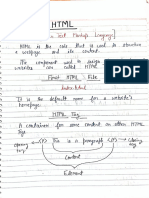 HTML
Text Markup Language]
HTML is the code that is used to structure
a webpage and its content.
The component used to design
websites are called HTML.
First HTML File
Index.html
It is the default name for a website's
homepage.
HTML Tag
A container for some content or other HTML
Tag
<P> This is a paragraph </P>
Content
Element